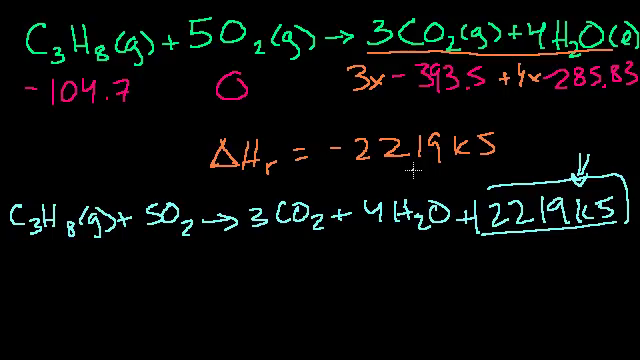 C₃H₈(g) + 5O₂(g) → 3CO₂(g) + 4H₂O(l)
-104.7 0 3x -393.5 + 4x -285.83
ΔHᵣ = -2219 kJ
C₃H₈(g) + 5O₂ → 3CO₂ + 4H₂O + 2219 kJ